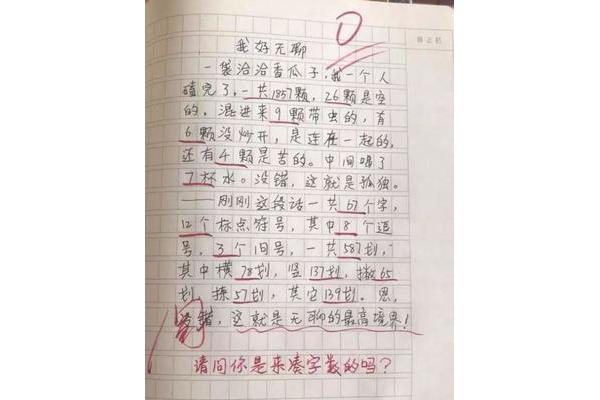 我好无聊
一袋洽洽香瓜子,我一个人
嗑完了,一共1857颗,26颗是空
的,混进来9颗带虫的,有
6颗没炒开,是连在一起的,
还有4颗是苦的。中间喝了
7杯水。没错,这就是孤独。
——刚刚这段话一共67个字,
12个标点符号,其中8个逗
号,3个句号,一共587划,
其中横78划,竖137划,撇65
划,捺57划,其它139划。恩,
没错,这就是无聊的最高境界!
请问你是来凑字数的吗?